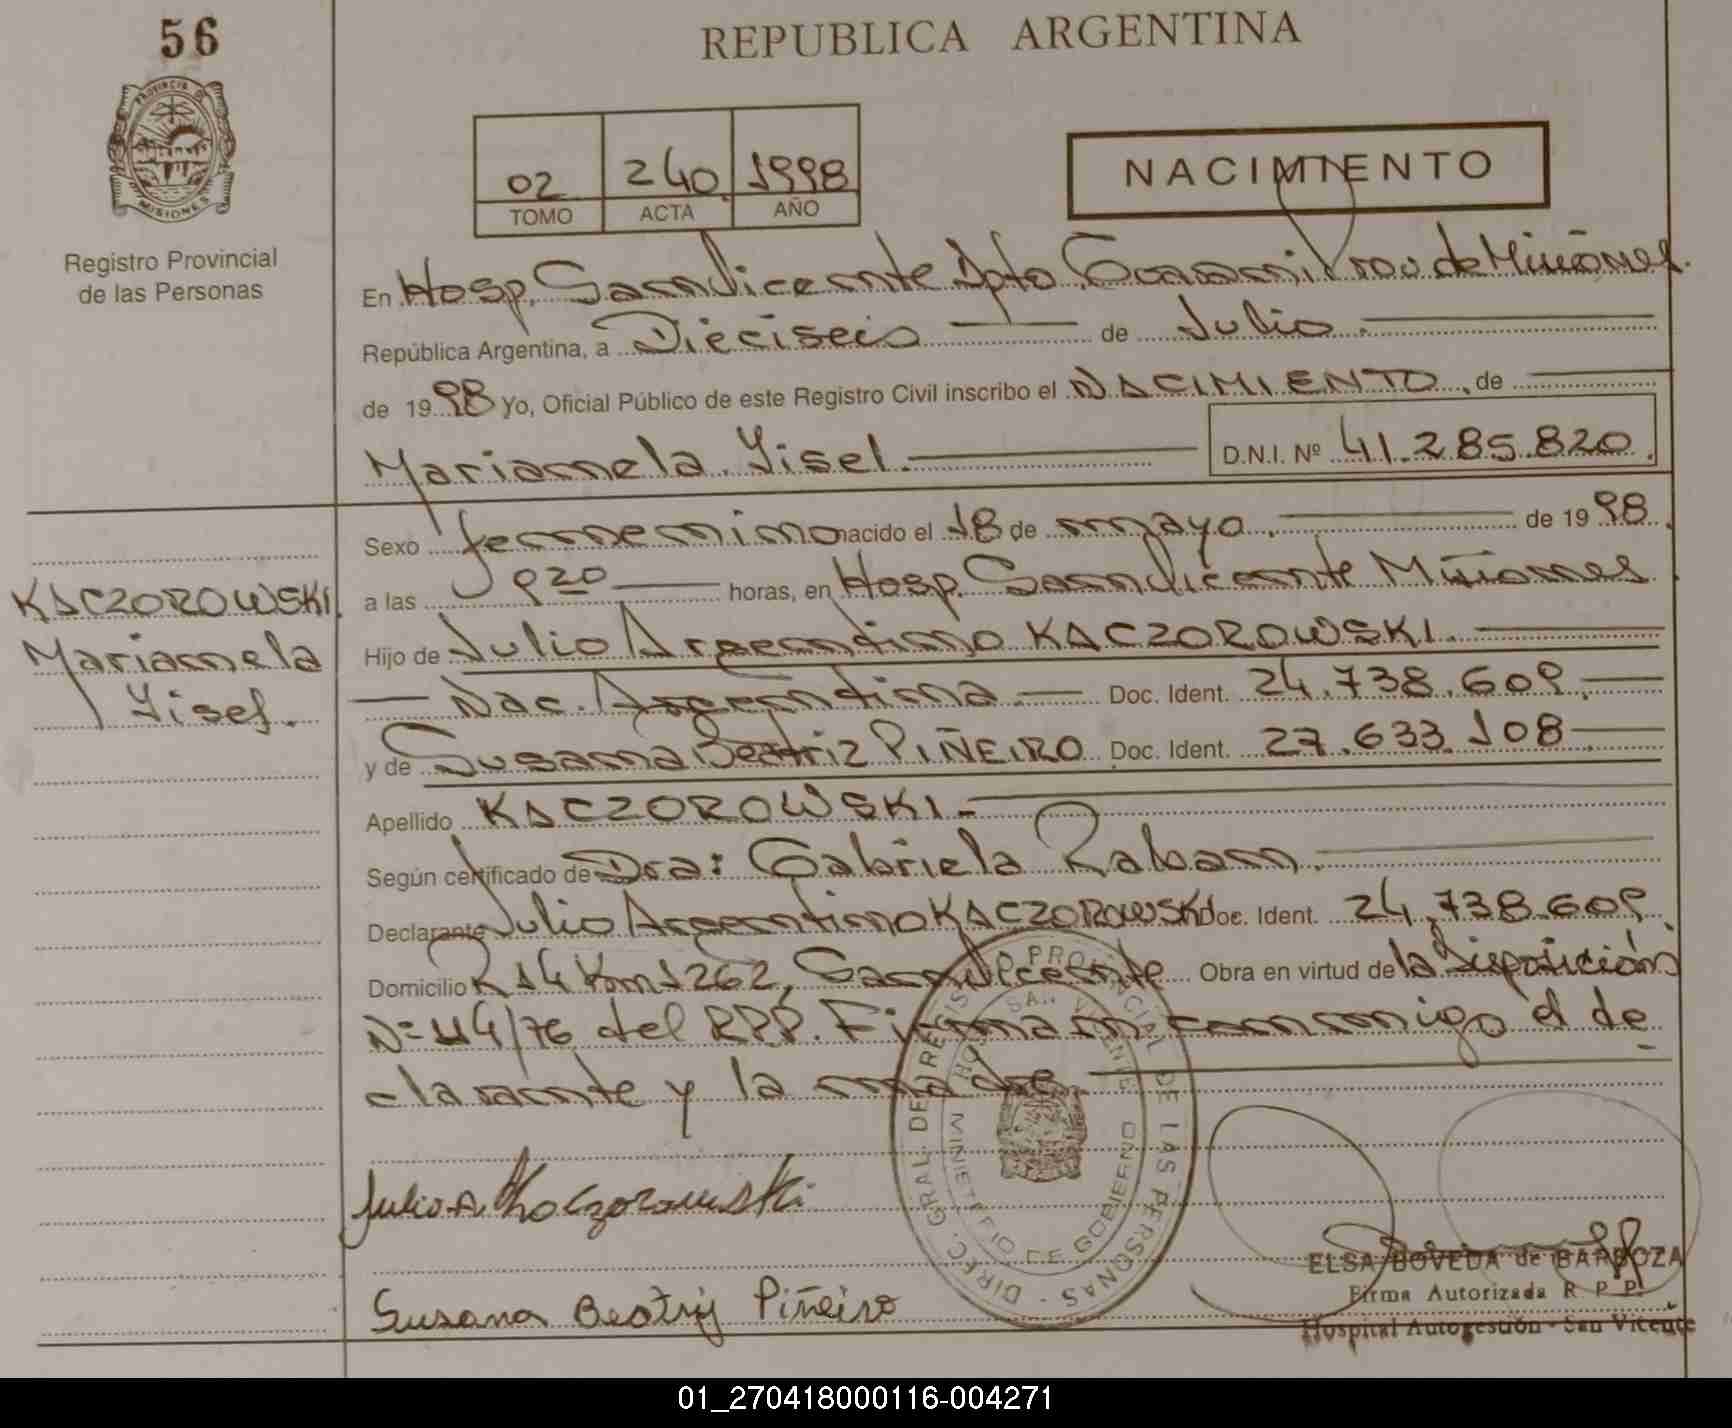 56
REPUBLICA ARGENTINA
PROVINCIA DE MISIONES
Registro Provincial
de las Personas
02 240 1998
TOMO ACTA AÑO
NACIMIENTO
En Hosp. San Vicente Dpto Guaraní Prov. de Misiones.
República Argentina, a Dieciseis de Julio
de 1998 Yo, Oficial Público de este Registro Civil inscribo el NACIMIENTO, de
Marianela Yisel. D.N.I. Nº 41.285.820.
Sexo femenino nacido el 18 de mayo, de 1998.
KACZOROWSKI
Marianela
Yisel.
a las 920 horas, en Hosp. San Vicente Misiones
Hijo de Julio Argentino KACZOROWSKI.
Nac. Argentina. Doc. Ident. 24.738.609.
y de Susana Beatriz PIÑEIRO Doc. Ident. 27.633.108
Apellido KACZOROWSKI.
Según certificado de Dra: Gabriela Raban.
Declarante Julio Argentino KACZOROWSKI doc. Ident. 24.738.609
Domicilio R 14 Km 1262, San Vicente Obra en virtud de la Disposición
Nº 114/76 del RPP. Firman conmigo el de
clarante y la madre.
DIREC. GRAL. DE REGISTRO PROVINCIAL DE LAS PERSONAS
HOSP. SAN VICENTE
MINISTERIO DE GOBIERNO
Julio A. Kaczorowski
Susana Beatriz Piñeiro
ELSA BOVEDA de BARBOZA
Firma Autorizada R P P
Hospital Autogestión - San Vicente
01_270418000116-004271